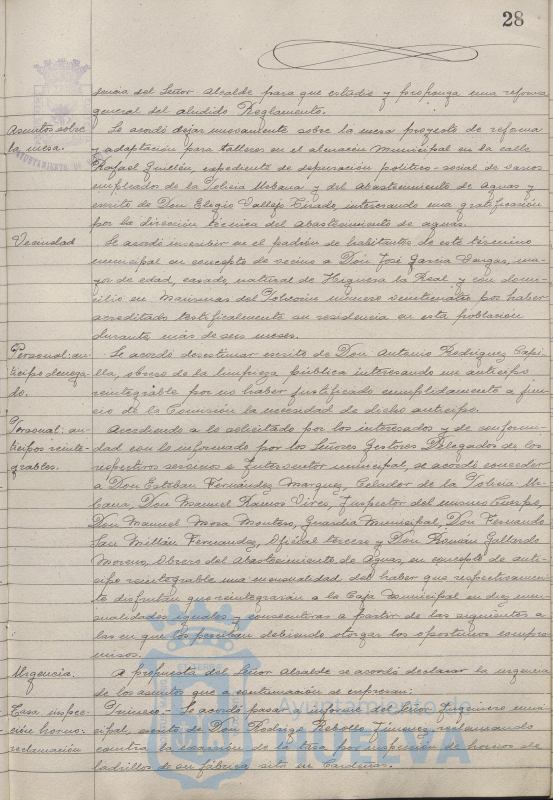 28
dencia del Señor Alcalde para que estudie y proponga una reforma
general del aludido Reglamento.
Asuntos sobre la mesa.
Se acordó dejar nuevamente sobre la mesa proyecto de reforma
y adaptación para talleres en el almacén municipal en la calle
Rafael Guillén, expediente de depuración político-social de varios
empleados de la Policía Urbana y del Abastecimiento de Aguas y
escrito de Don Eligio Vallejo Tirado interesando una gratificación
por la dirección técnica del Abastecimiento de aguas.
Vecindad
Se acordó inscribir en el padrón de habitantes de este término
municipal en concepto de vecino a Don José García Vargas, ma-
yor de edad, casado, natural de Higuera la Real y con domi-
cilio en Marismas del Polvorín número veinticuatro por haber
acreditado testificalmente su residencia en esta población
durante más de seis meses.
Personal: an-
ticipo denega-
do.
Se acordó desestimar escrito de Don Antonio Rodríguez Capi-
lla, obrero de la limpieza pública interesando un anticipo
reintegrable por no haber justificado cumplidamente a jui-
cio de la Comisión la necesidad de dicho anticipo.
Personal: an-
ticipos reinte-
grables.
Accediendo a lo solicitado por los interesados y de conformi-
dad con lo informado por los Señores Gestores Delegados de los
respectivos servicios e Interventor municipal, se acordó conceder
a Don Esteban Fernández Márquez, Celador de la Policía Ur-
bana, Don Manuel Ramos Vires, Inspector del mismo Cuerpo,
Don Manuel Mora Montero, Guardia Municipal, Don Fernando
San Millán Fernández, Oficial tercero y Don Román Gallardo
Moreno, Obrero del Abastecimiento de Aguas, en concepto de anti-
cipo reintegrable una mensualidad del haber que respectivamen-
te disfrutan que reintegrarán a la Caja Municipal en diez men-
sualidades iguales y consecutivas a partir de las siguientes a
las en que los perciban debiendo otorgar los oportunos compro-
misos.
Urgencia.
A propuesta del Señor Alcalde se acordó declarar la urgencia
de los asuntos que a continuación se expresan:
Tasa inspec-
ción hornos:
reclamación
Primero. Se acordó pasar a informe del Señor Ingeniero muni-
cipal, escrito de Don Rodrigo Rebollo Jiménez reclamando
contra la tasación de la tasa por inspección de hornos de
ladrillos de su fábrica sita en Cardeñas.
Ayuntamiento de
HUELVA